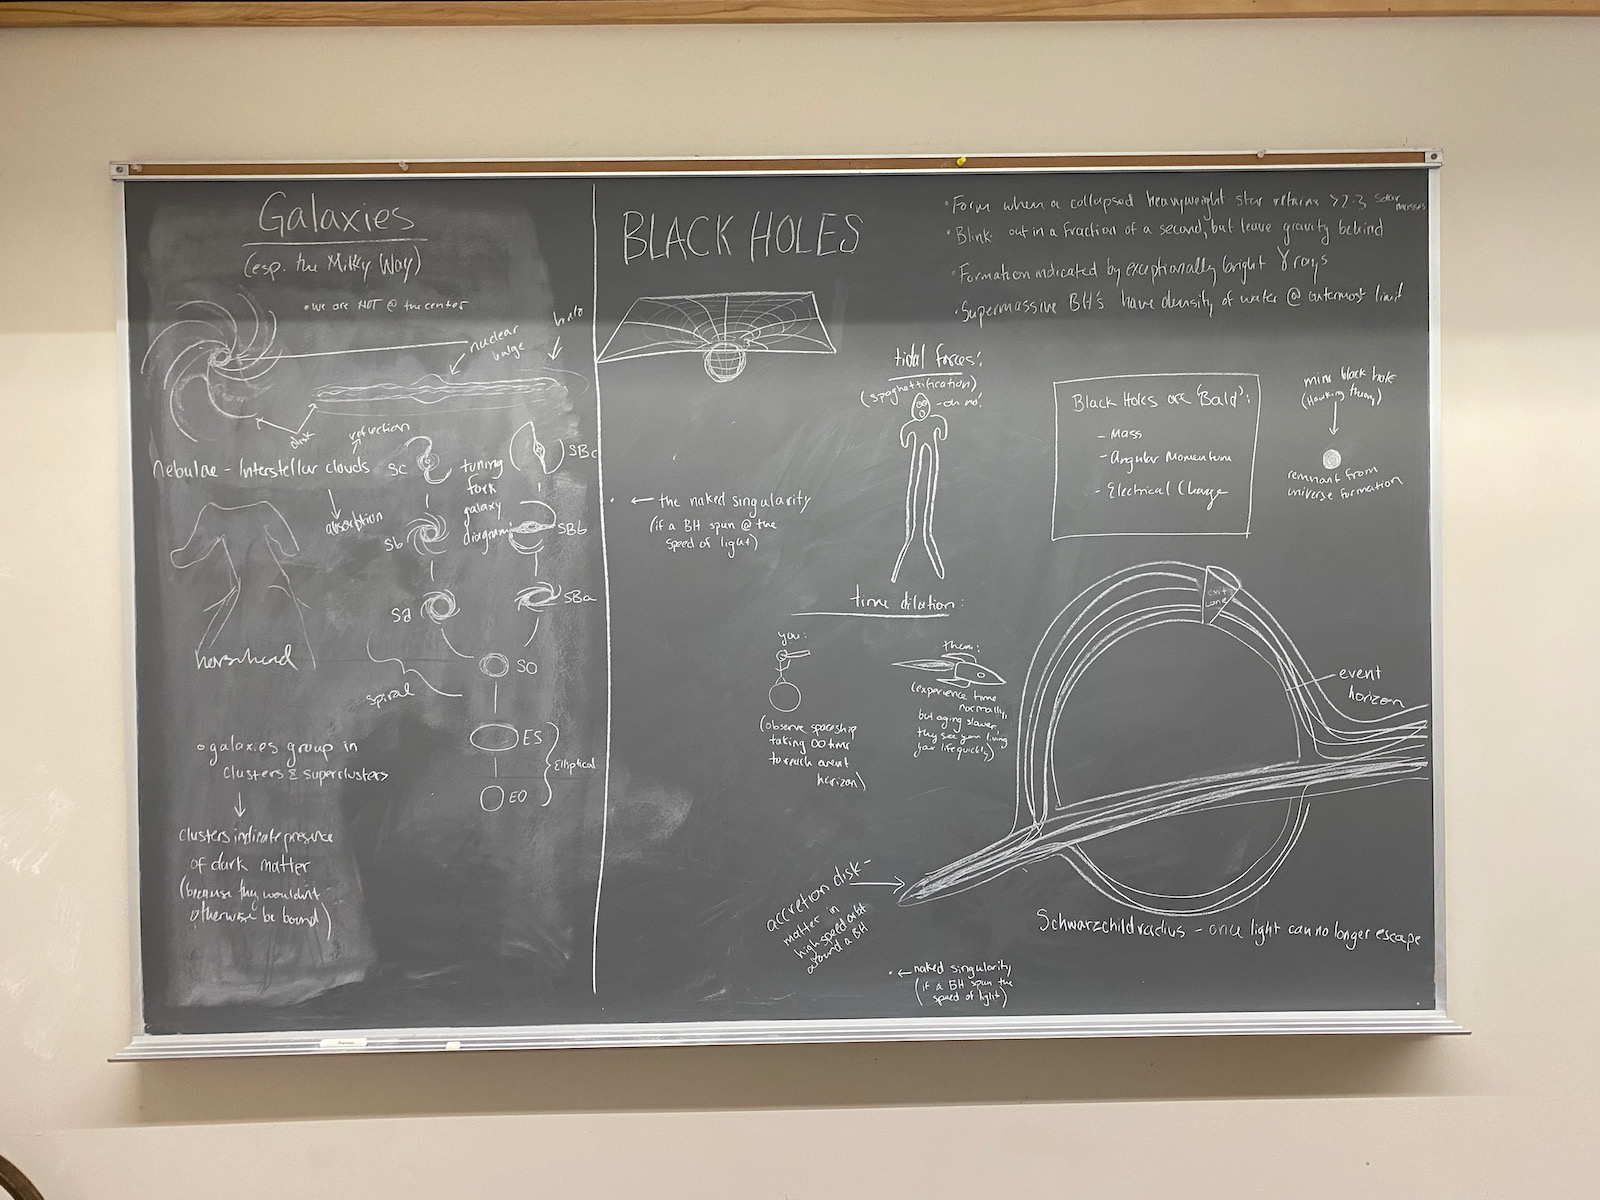 Galaxies
(esp. the Milky Way)
• we are NOT @ the center
nuclear
bulge
halo
disk
reflection
Nebulae - Interstellar clouds
absorption
horsehead
tuning
fork
galaxy
diagram:
Sc
SBc
Sb
SBb
Sa
SBa
SO
spiral
E5
EO
Elliptical
• galaxies group in
clusters & superclusters
↓
clusters indicate presence
of dark matter
(because they wouldn't
otherwise be bound)
BLACK HOLES
• Form when a collapsed heavyweight star retains >2-3 solar
masses
• Blink out in a fraction of a second, but leave gravity behind
• Formation indicated by exceptionally bright γ rays
• Supermassive BH's have density of water @ outermost limit
tidal forces:
(spaghettification)
- oh no!
Black Holes are 'Bald':
- Mass
- Angular Momentum
- Electrical Charge
mini black hole
(Hawking theory)
remnant from
universe formation
• ← the naked singularity
(if a BH spun @ the
speed of light)
time dilation:
you:
(observe spaceship
taking ∞ time
to reach event
horizon)
them:
(experience time
normally,
but aging slower
they see you living
your life quickly)
exit
cone
event
horizon
accretion disk -
matter in
high speed orbit
around a BH
Schwarzchild radius - once light can no longer escape
• ← naked singularity
(if a BH spun the
speed of light)